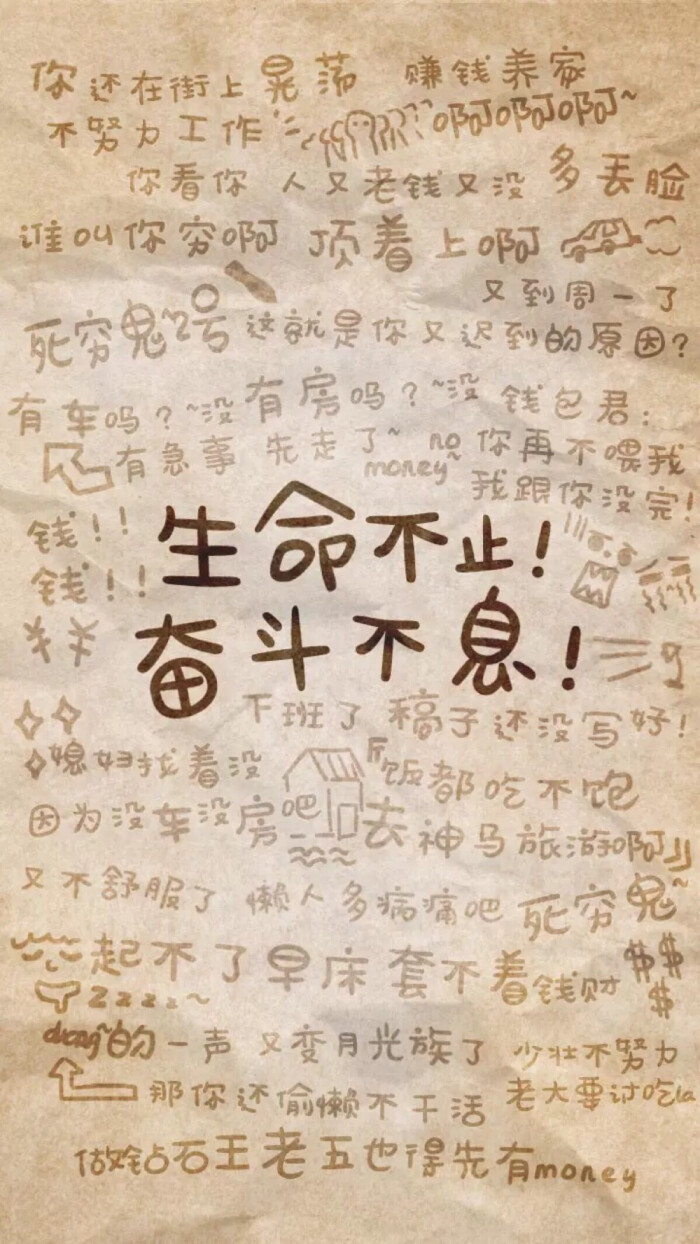 你还在街上晃荡 赚钱养家
不努力工作 啊啊啊~
你看你 人又老钱又没 多丢脸
谁叫你穷啊 顶着上啊
又到周一了
死穷鬼~2号 这就是你又迟到的原因?
有车吗?~没 有房吗?~没 钱包君:
有急事 先走了~ no money~ 你再不喂我
我跟你没完!
钱!!
钱!!
生命不止!
奋斗不息!
下班了 稿子还没写好!
媳妇找着没 饭都吃不饱
因为没车没房吧 去神马旅游啊
又不舒服了 懒人多病痛吧 死穷鬼~
起不了早床 套不着钱财 $$$
zzzz~
duang~的一声 又变月光族了 少壮不努力
那你还偷懒不干活 老大要讨吃la
做钻石王老五也得先有money